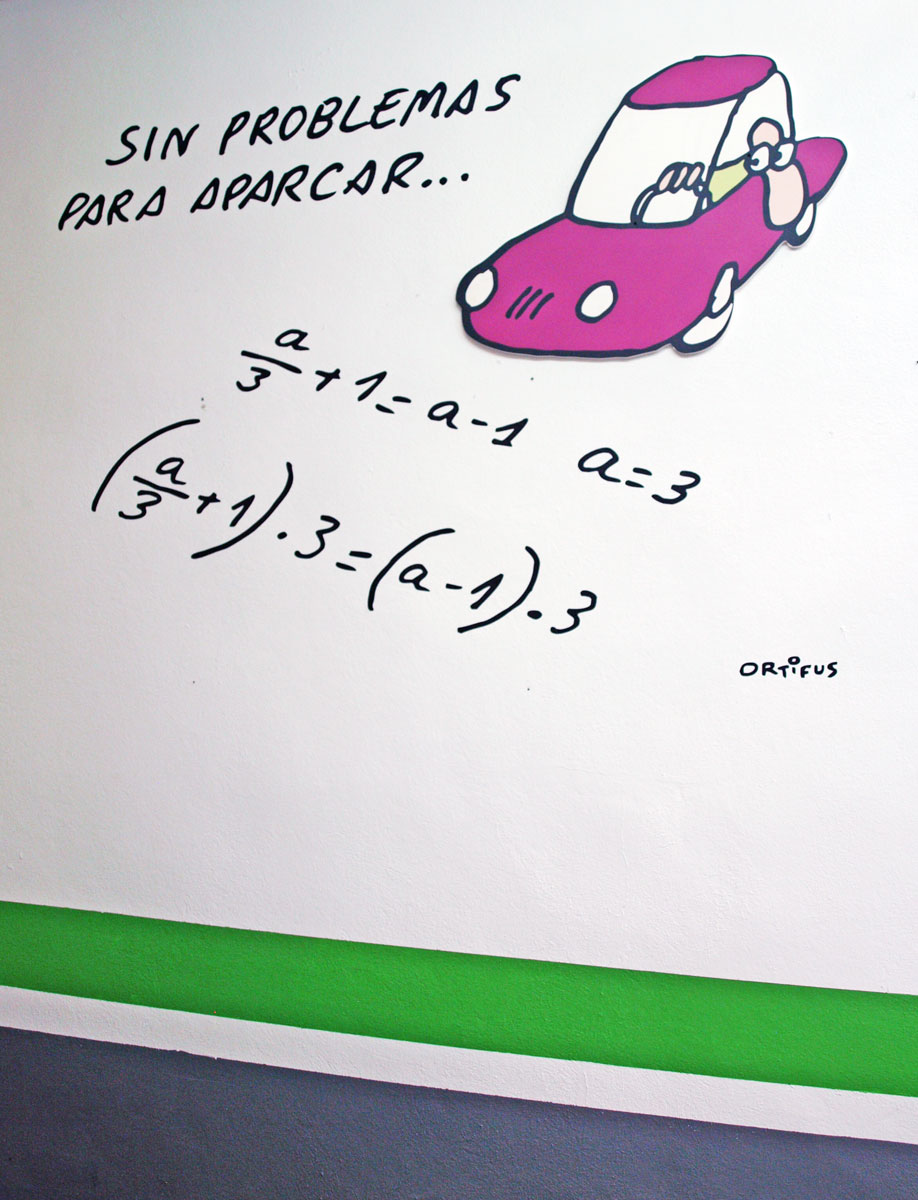 SIN PROBLEMAS
PARA APARCAR...
a/3 + 1 = a - 1   a = 3
(a/3 + 1) . 3 = (a - 1) . 3
ORTIFUS